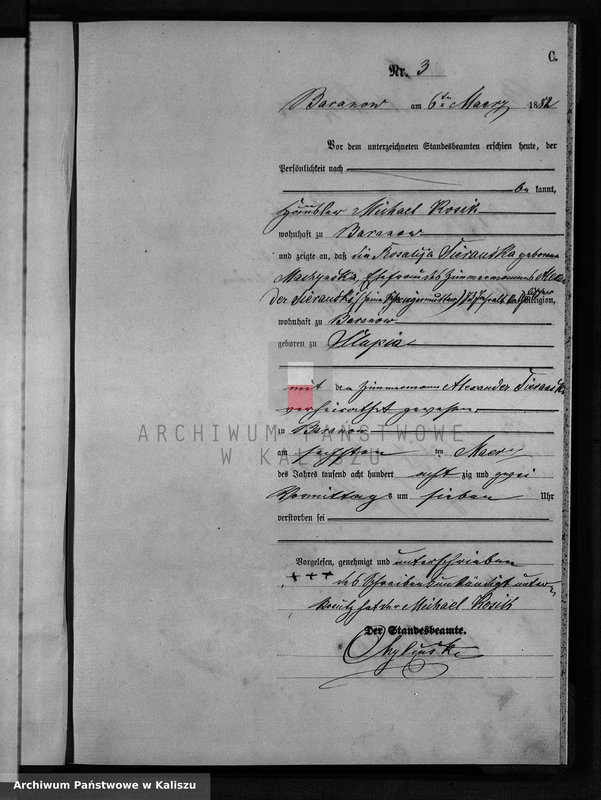 C.
Nr. 3
Baranow am 6ten Maerz 1882
Vor dem unterzeichneten Standesbeamten erschien heute, der
Persönlichkeit nach
be kannt,
Häusler Michael Kosik
wohnhaft zu Baranow
und zeigte an, daß die Rosalija Sieranska geborene
Ehefrau des Zimmermanns Alexan
der Sieranski (seine Schwiegermutter) Religion,
wohnhaft zu Baranow
geboren zu Slupia
mit dem Zimmermann Alexander Sieranski
verheirathet gewesen,
zu Baranow
am sechsten ten Maerz
des Jahres tausend acht hundert acht zig und zwei
Vormittags um sieben Uhr
verstorben sei
Vorgelesen, genehmigt und unterschrieben
+++ des Schreibens unkündigt unter
kreutzt hat der Michael Kosik
Der Standesbeamte.
ARCHIWUM PAŃSTWOWE
W KALISZU
Archiwum Państwowe w Kaliszu